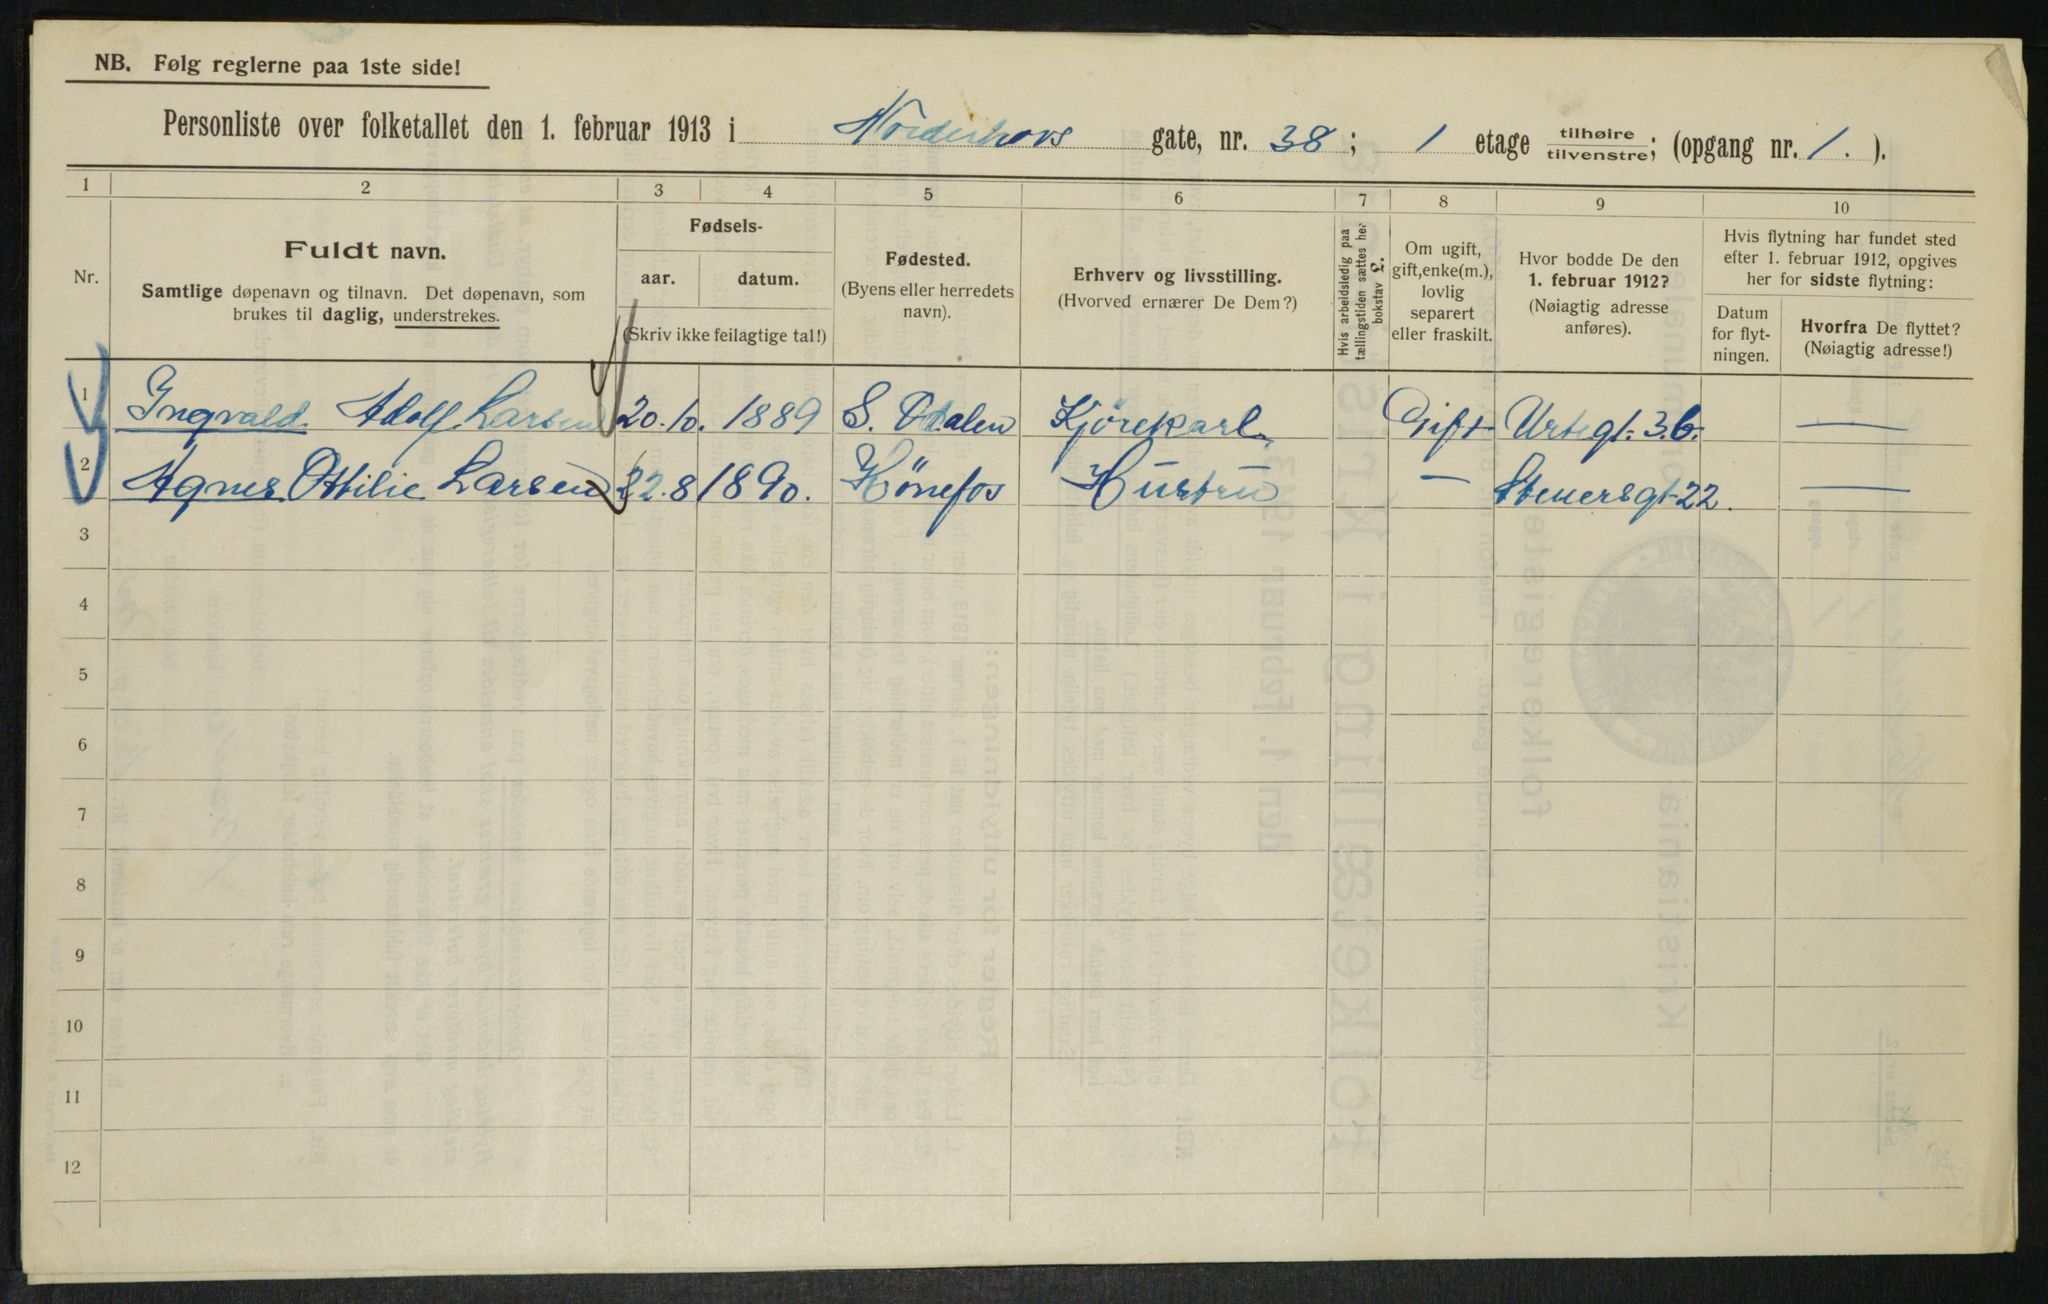 NB. Følg reglerne paa 1ste side!
Personliste over folketallet den 1. februar 1913 i Norderhovs gate, nr. 38; 1 etage tilhøire/tilvenstre; (opgang nr. 1.).
1 2 3 4 5 6 7 8 9 10
Nr.
Fuldt navn.
Samtlige døpenavn og tilnavn. Det døpenavn, som
brukes til daglig, understrekes.
Fødsels-
aar. datum.
(Skriv ikke feilagtige tal!)
Fødested.
(Byens eller herredets
navn).
Erhverv og livsstilling.
(Hvorved ernærer De Dem?)
Hvis arbeidsledig paa
tællingstiden sættes her
bokstav L.
Om ugift,
gift, enke(m.),
lovlig
separert
eller fraskilt.
Hvor bodde De den
1. februar 1912?
(Nøiagtig adresse
anføres).
Hvis flytning har fundet sted
efter 1. februar 1912, opgives
her for sidste flytning:
Datum
for flyt-
ningen.
Hvorfra De flyttet?
(Nøiagtig adresse!)
1 Ingvald Adolf Larsen 20.10. 1889 S. Odalen Kjørekarl Gift Urtegt. 3.b. —
2 Agnes Ottilie Larsen 22.8 1890. Hönefos Hustru — Steuersgt 22. —
3
4
5
6
7
8
9
10
11
12